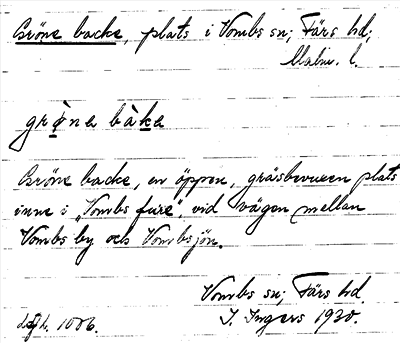 Gröne backe, plats i Vombs sn; Färs hd;
Malm. l.
grø̀nə bàkə
Gröne backe, en öppen, gräsbevuxen plats
inne i „Vombs fure”, vid vägen mellan
Vombs by och Vombsjön.
Vombs sn; Färs hd.
I. Ingers 1930.
1006.